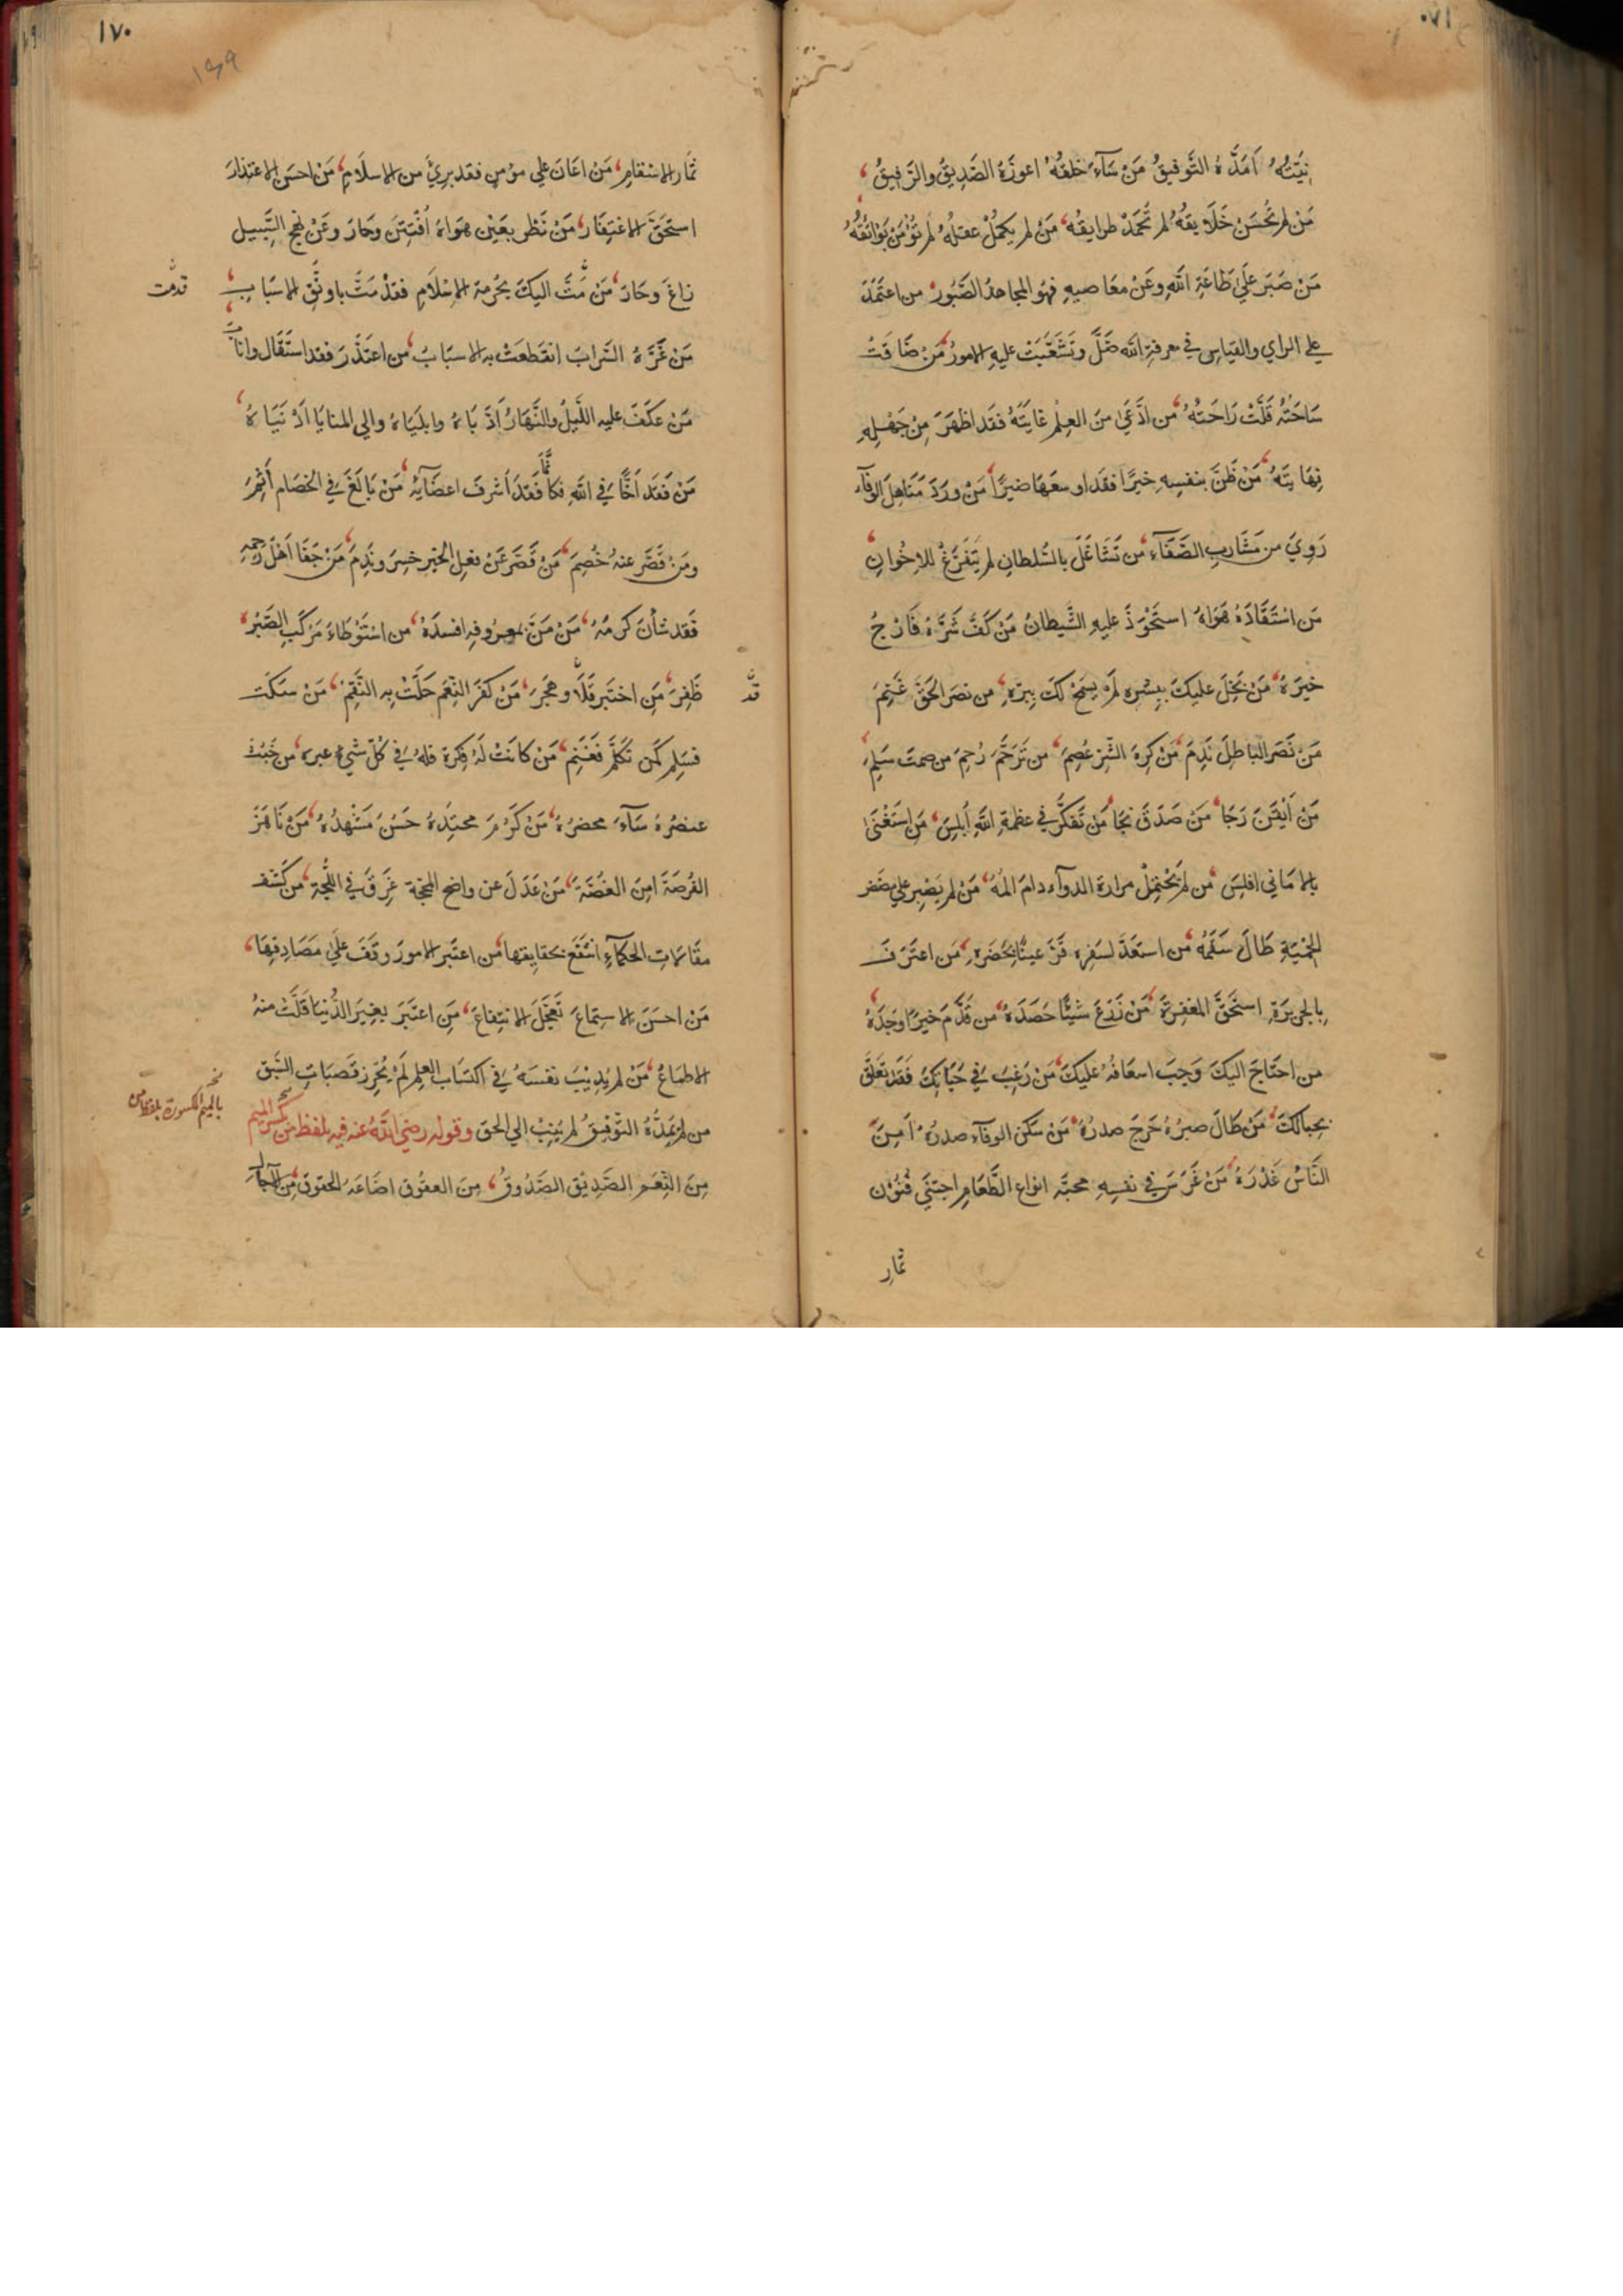 ٠٧١
نِيَّتُهُ اَمَدَّهُ التَّوفيقُ مَنْ سَآءَ خلقُهُ اعوزَهُ الصَّدِيقُ والرَّفيقُ
مَن لم تَحسَنْ خَلَايقُهُ لم تُحمَدْ طرايقُه مَنْ لم يكمُلْ عقلُهُ لم تؤمَنْ بَوَائقُهُ
مَنْ صَبَرَ عَلَى طَاعَةِ اللهِ وعَنْ معَاصيهِ فهُو المجاهدُ الصَّبُور من اعتَمَدَ
علي الراي والقيَاسِ في معرفةِ الله ضَلَّ وتَشَعَّبَتْ عليهِ الامورُ مَنْ ضَاقَتْ
سَاحَتُهُ قَلَّتْ رَاحَتُهُ من ادَّعَي منَ العِلْمِ غايَتَهُ فقَد اظهَرَ مِنْ جَهْلِهِ
نِهَايَتَهُ مَنْ ظَنَّ بنفسِهِ خيرًا فقَد اوسعَهَا ضيرًا مَنْ ورَدَ مَنَاهِلَ الوفآء
رَوِيَ من مَشَاربِ الصَّفَآءِ من تَشَاغَلَ بالسُّلطانِ لم يَتَفَرَّغْ للاِخْوانِ
مَن اسْتَقَادَهُ هَوَاهُ استَحْوَذَ عليهِ الشَّيطانُ مَنْ كَفَّ شَرَّهُ فَارْجُ
خيْرَهُ مَنْ بَخِلَ عليكَ ببِشْرِه لَمْ يسمَحْ لكَ بِبِرّهِ من نصَرَ الحَقَّ غَنِمَ
مَنْ نَصَرَ البَاطِلَ نَدِمَ مَنْ كرِهَ الشَّرَّ عُصِمَ من تَرَحَّمَ رُحِمَ من صمتَ سَلِمَ
مَنْ اَيْقَنَ رَجَا مَنْ صَدَقَ نجَا مَنْ تَفكَّرَ في عظمةِ اللهِ اَبلَسَ مَن استَغْنَى
بالامَاني افلَسَ من لم يَحْتَمِلْ مرارة الدوآء دامَ المهُ مَنْ لم يَصْبِر علي مضَضِ
الحِمْيَةِ طَالَ سَقَمُه من استعَدَّ لسَفِره قَرَّ عينًا بحَضَرهِ مَن اعتَرَفَ
بِالجريَرَةِ استحَقَّ المغفِرَةَ مَنْ زَرَعَ شيْئًا حَصَدَهُ من قَدَّمَ خيرًا وجَدَهُ
من احتَاجَ اليكَ وَجبَ اسعَافُهُ عليكَ مَنْ رَغِبَ في حَبَائِكَ فقَد تعَلَّقَ
بِحبالكَ مَنْ طَالَ صبرُهُ حَرِجَ صدرُهُ مَنْ سكنَ الوفآء صدرَهُ اَمِنَ
النَّاسُ غَدْرَهُ مَنْ غَرَسَ في نفسِهِ محبّه انواعِ الطَّعَامِ اجتَني فُنُوْن
ثمَار
١٧٠
١٦٩
ثمَار الاسْقامِ مَنْ اعَانَ علي مؤمنٍ فقد بريَّ من الاسلَامِ مَنْ احسَنَ الاعتذارَ
استَحَقَّ الاغتِفَارَ مَنْ نَظَر بعَيْن هَوَاهُ افْتَتَنَ وجَارَ وعَنْ نهجِ السَّبيلِ
زاغَ وحَارَ مَنْ مَتَّ اليكَ بحُرمة الاِسْلَامِ فقدْ مَتَّ باوثَقِ الاسْبَابِ
قدمت
مَنْ غَرَّهُ السَّرابُ انقَطعَتْ به الاسبَابُ من اعتَذَرَ فقد استَقَالَ وانابَ
مَنْ عكَفَ عليه اللَّيلُ والنَّهَارُ اَدَّبَاهُ وابلَيَاهُ والي المنايَا اَدْنَيَاهُ
مَنْ فَقَدَ اَخًا في اللهِ فكأنَّما فَقدَ اَشرفَ اعضَآئِهِ مَنْ بَالَغَ في الخصَامِ اَثِمَ
ومَنْ قصَّرَ عنهُ خُصِمَ مَنْ قَصَّرَ عَنْ فعلِ الخيرِ خسِرَ ونَدِمَ مَنْ جَفَا اَهْلَ رَحِمِهِ
فقَد شانَ كرمَهُ مَنْ مَنَّ بمعرُوفِهِ افسدَهُ من استَوْطَاءَ مَركَبَ الصَّبْرِ
ظَفِرَ مَنِ اختَبر قَلَا وهجَرَ مَنْ كفَرَ النِّعَم حَلَّتْ بهِ النَّقِمُ مَنْ سَكَتَ
قد
فسَلِم كمَن تَكلَّمَ فَغَنِم مَنْ كانَتْ لَهُ فكرة فلهُ في كُلّ شَيء عبرة من خَبُثَ
عنصُرهُ سَآءَ محضرُهُ مَنْ كَرُمَ محتِدُهُ حَسُنَ مَشْهدُهُ مَنْ نَاهَزَ
الفُرصَةَ امِنَ الغُصَّةَ مَنْ عَدَلَ عن واضحِ المحَجّة غَرِقَ في اللُّجّة من كشَف
مقَامَاتِ الحكمآءِ انتَفَعَ بحقايقهَا من اعتَبرَ الامورَ وقَفَ علَي مَصَادِقِهَا
مَنْ احسَنَ الاستِماعَ تَعَجَّلَ الانتِفاعَ مَنِ اعتَبَرَ بغِيَرِ الدُّنيَا قَلَّتْ منهُ
الاطماعُ مَنْ لم يُدِئِبْ نفسَهُ في اكتسَاب العِلمِ لَمْ يُحْرِز قصَبَاتِ السَّبْقِ
من لم يُمِدَّهُ التوْفيقُ لم يُنِبْ الي الحق وقوله رضيَ اللهُ عنه فيه بلفظ مِن بكسرِ الميم
بالميم المكسورة بلفظ من
مِنَ النِّعَمِ الصَّدِيْقُ الصَّدُوقُ مِنَ العقُوق اضَاعَةُ الحقوقِ مِنَ